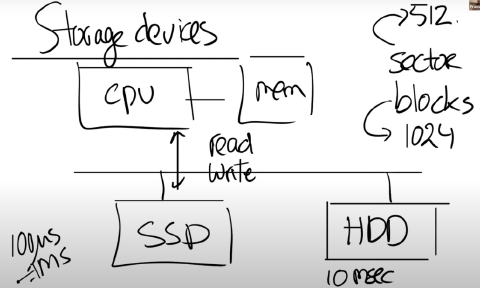 Storage devices
512.
sector
blocks
1024
CPU
mem
read
write
SSD
HDD
100µs
1ms
10 msec